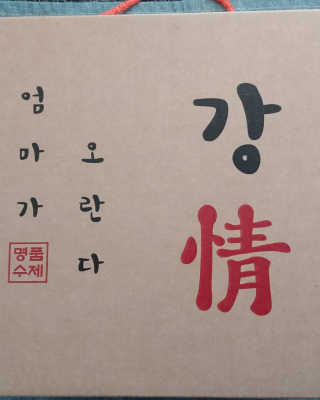 강
情
엄마가
오란다
명품
수제